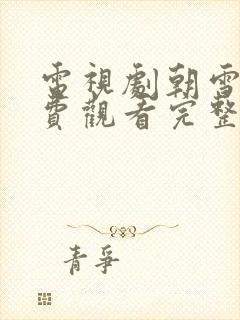 電視劇朝雪
費觀看完整
青爭